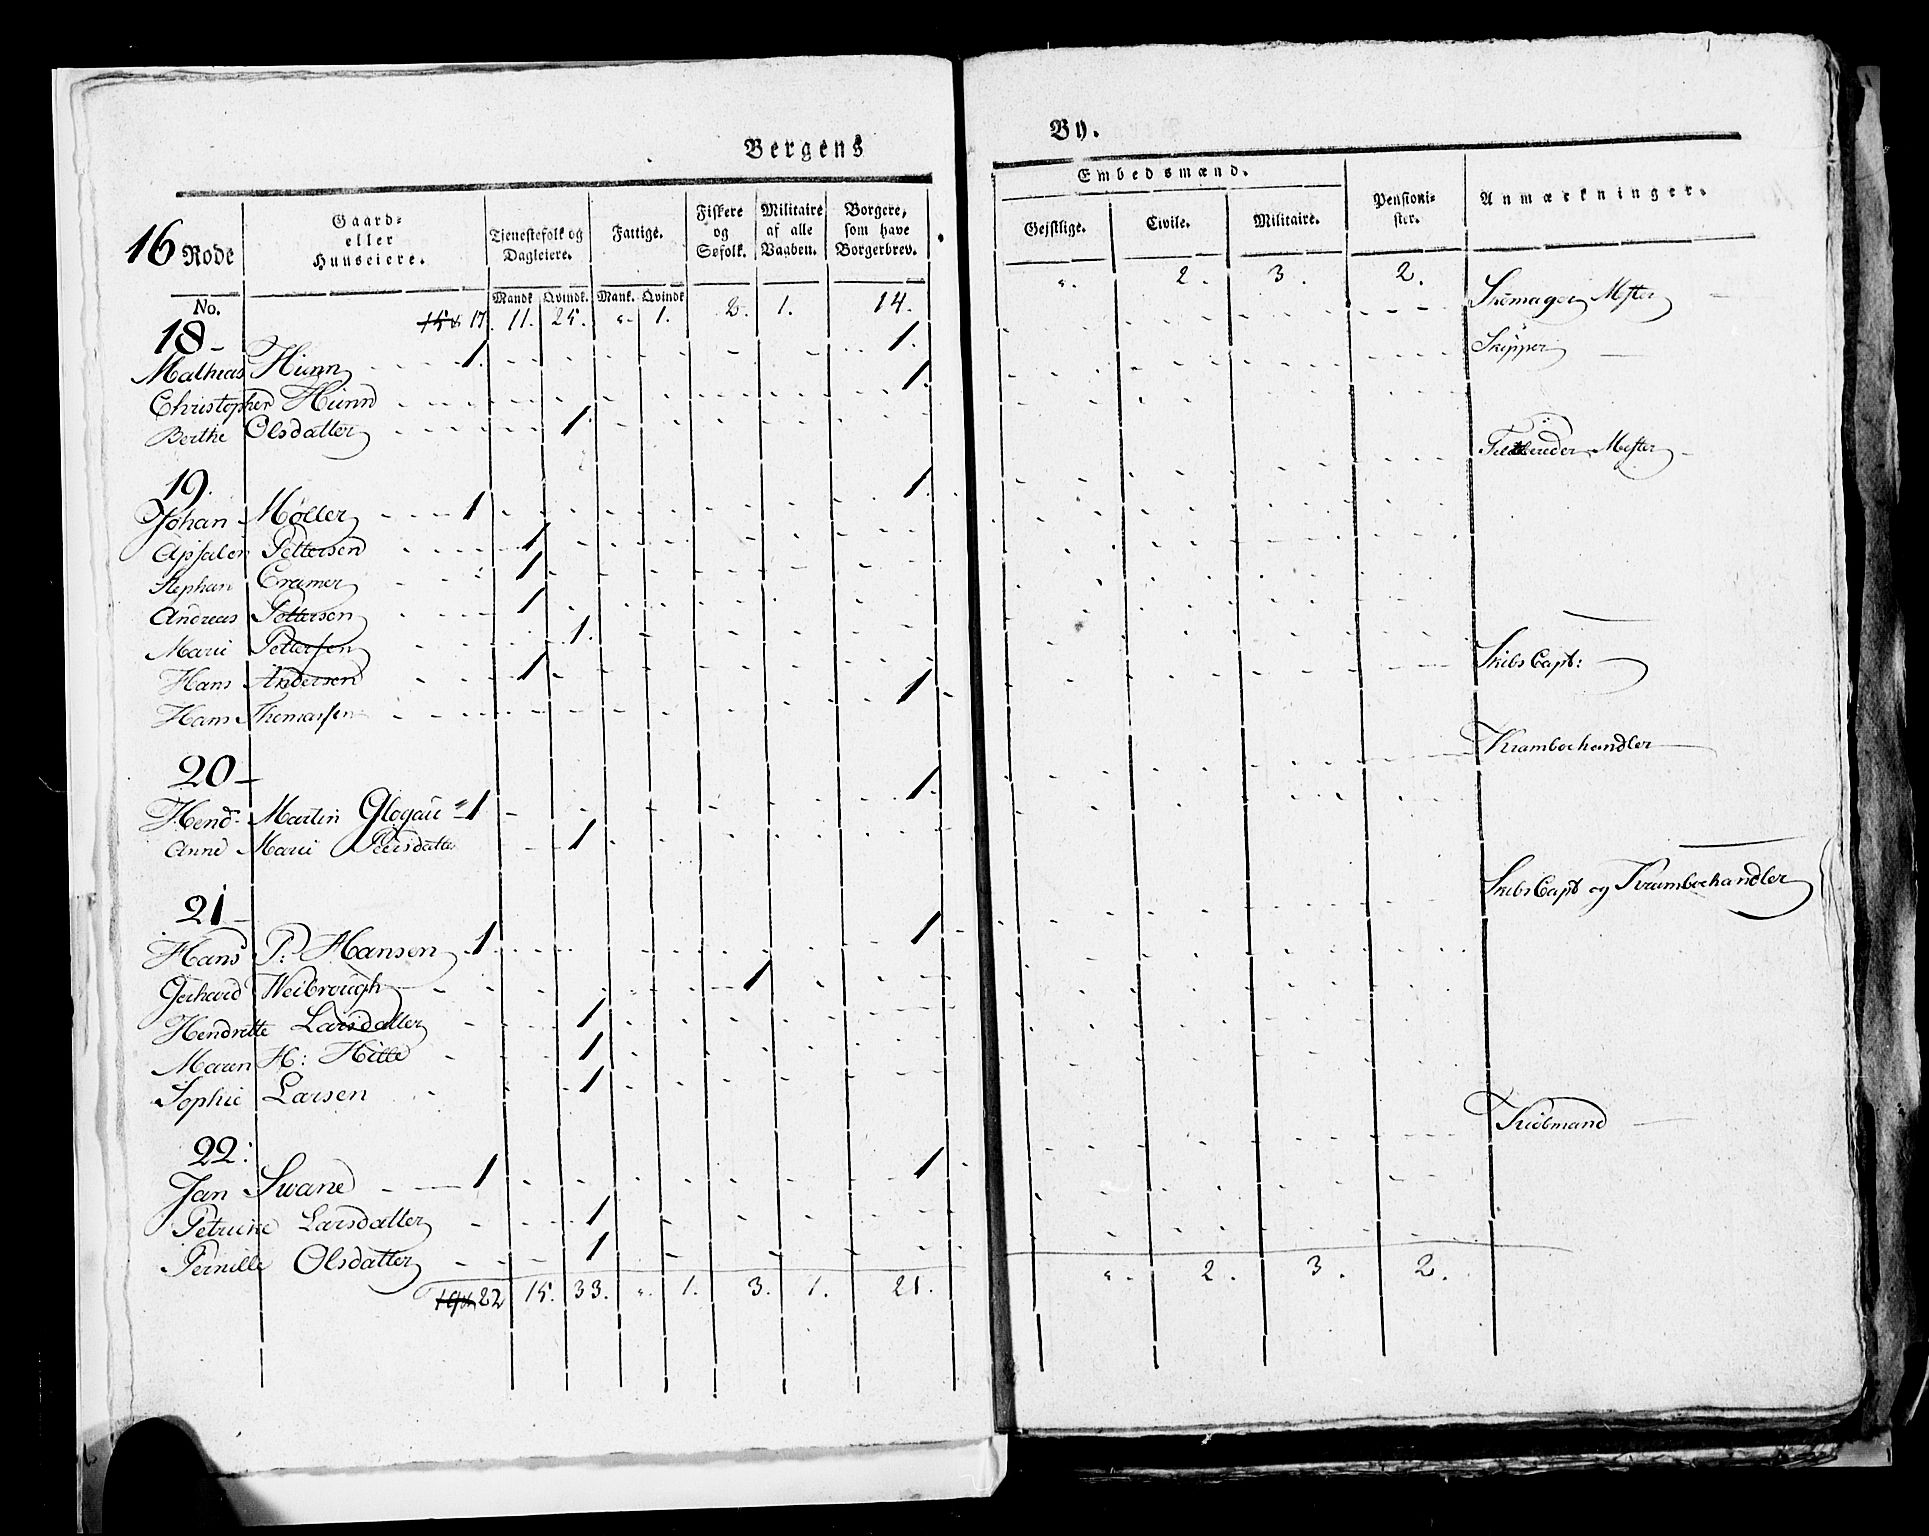 Bergens By.
16 Rode
Gaard-
eller
Huuseiere.
Tienestefolk og
Dagleiere.
Fattige.
Fiskere
og
Søfolk.
Militaire
af alle
Vaaben.
Borgere,
som have
Borgerbrev.
Embedsmænd.
Gejstlige. Civile. Militaire.
Pensioni-
ster.
Anmærkninger.
No. Mandk. Qvindk. Mank. Qvindk.
17. 11. 25. „. 1. 2. 1. 14. „. 2. 3. 2.
18
Mathias Hünn 1. 1. Skomager Mester
Christopher Hünn 1. Skipper
Berthe Olsdatter 1.
19.
Johan Møller 1 1. Feldbereder Mester
Apsalon Pettersen 1
Stephan Cramer 1
Andreas Pettersen 1
Marie Pettersen 1.
Hans Andersen 1
Hans Thomassen 1 Skibs Capt:
20
Hend. Martin Glogau 1 1. Kramboehandler
Anne Marie Peersdatter 1
21
Hans P: Hansen 1 1 Skibs Capt og Kramboehandler
Gerhard Weibrough 1
Hendrette Larsdatter 1
Maren H: Hille 1
Sophie Larsen 1
22:
Jan Svane 1 1 Kiøbmand
Petricke Larsdatter 1
Pernille Olsdatter 1
22 15. 33. „. 1. 3. 1. 21. „. 2. 3. 2.